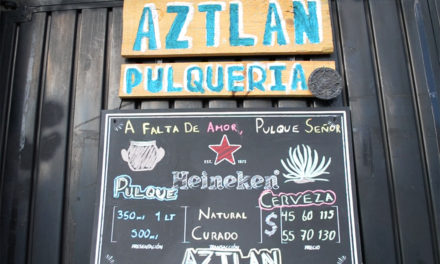 AZTLÁN
PULQUERIA
A FALTA DE AMOR, PULQUE SEÑOR
EST. 1873
Heineken
PULQUE
CERVEZA
350ml 1 LT
500ml
NATURAL
CURADO
$ 45 60 115
55 70 130
PRESENTACIÓN
TRANSACCIÓN
PRECIO
AZTLÁN